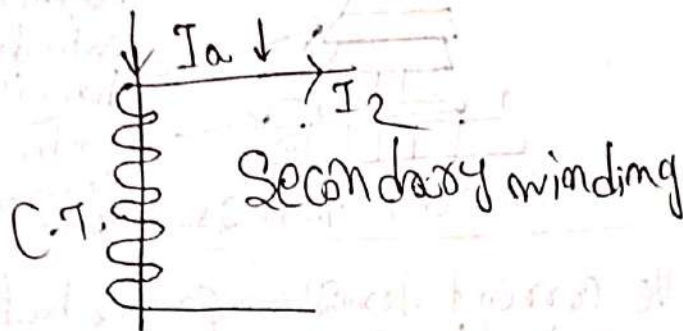 Ia ↓
I2
Secondary winding
C.T.